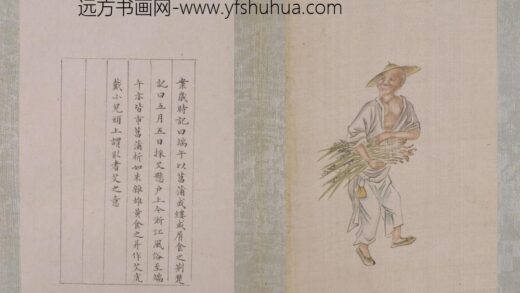 远方书画网-www.yfshuhua.com
業歲時記曰端午以菖蒲或縷或屑食之荆楚
記曰五月五日採艾懸户上今浙江風俗至端
午亦皆市菖蒲祈如米雜雄黄食之并作艾虎
戴小兒頭上謂猷者艾之意